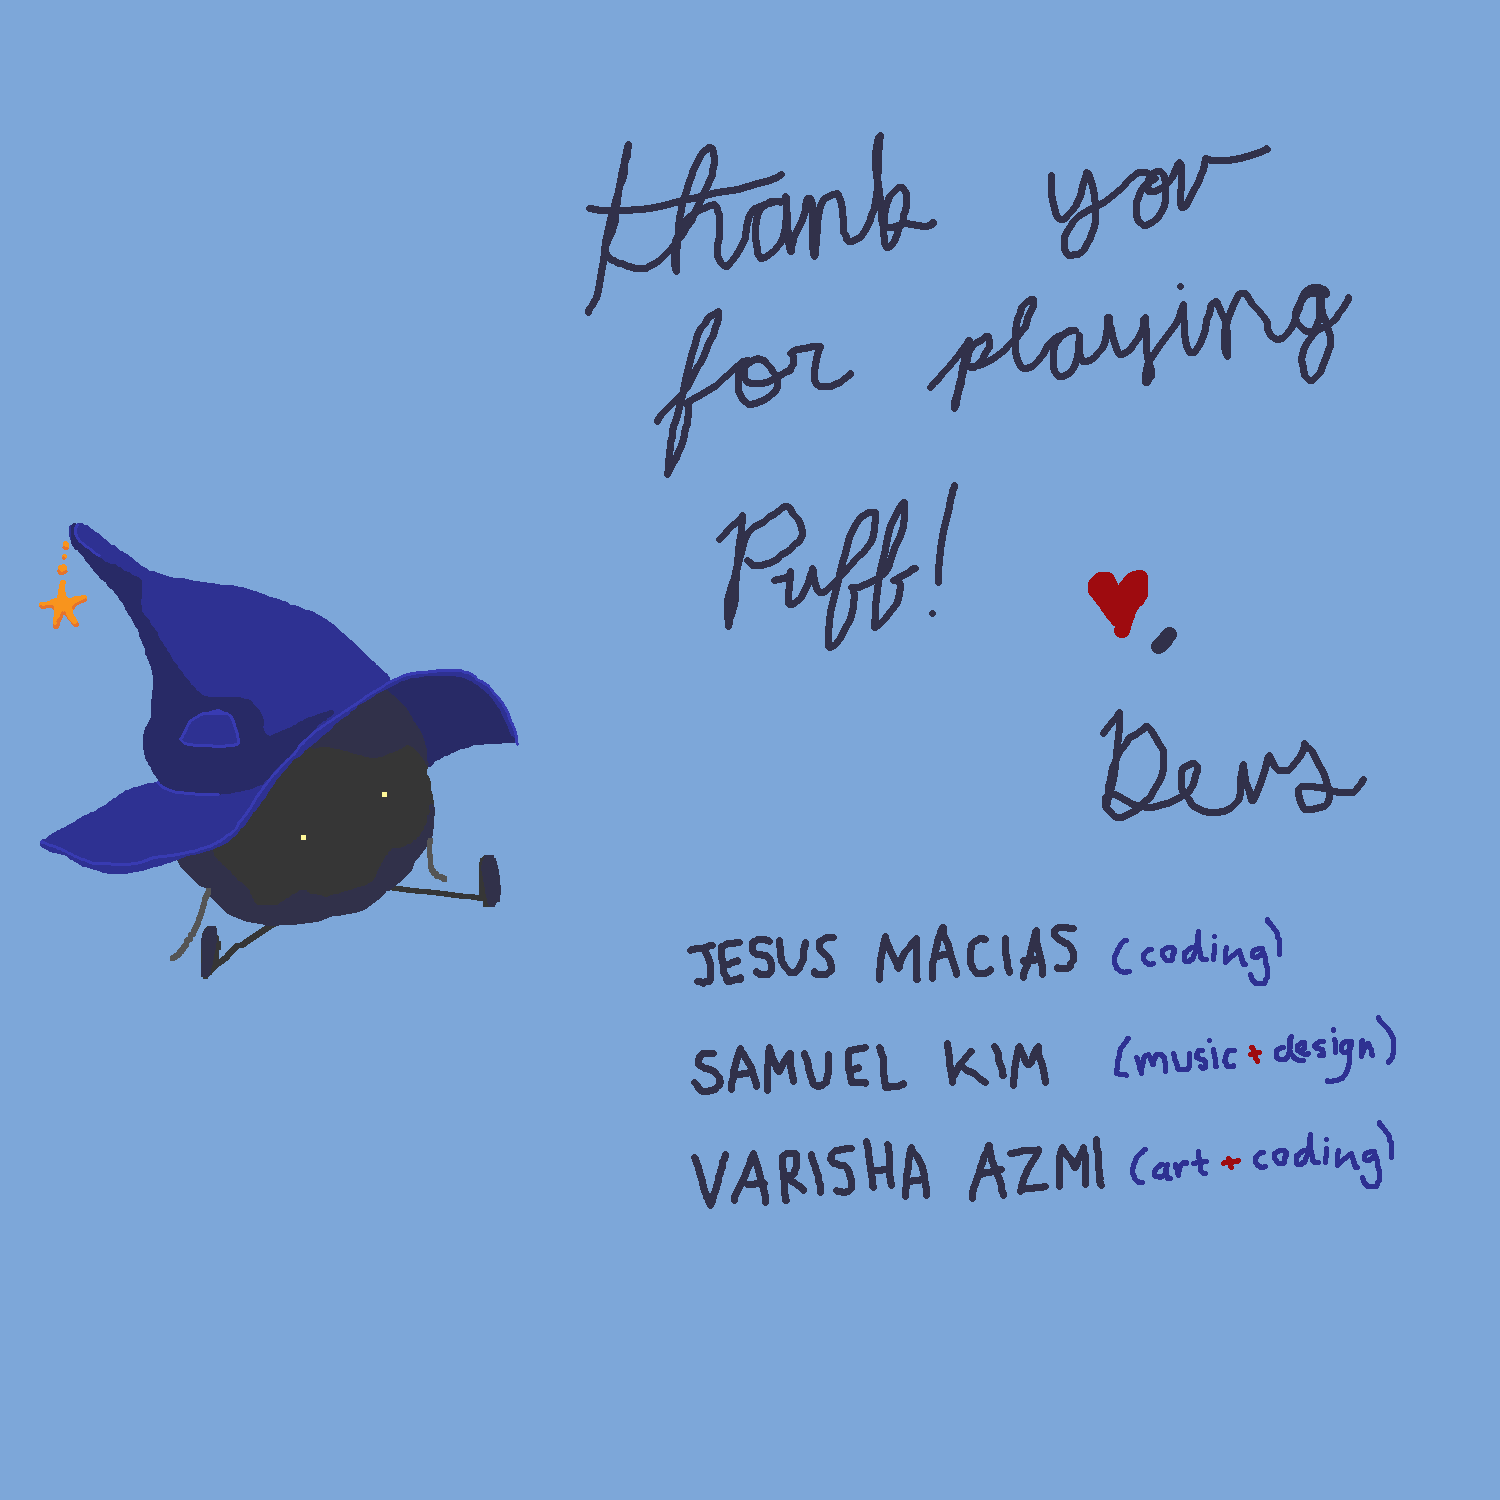 thank you
for playing
Puff!
♥,
Devs
JESUS MACIAS (coding)
SAMUEL KIM (music + design)
VARISHA AZMI (art + coding)